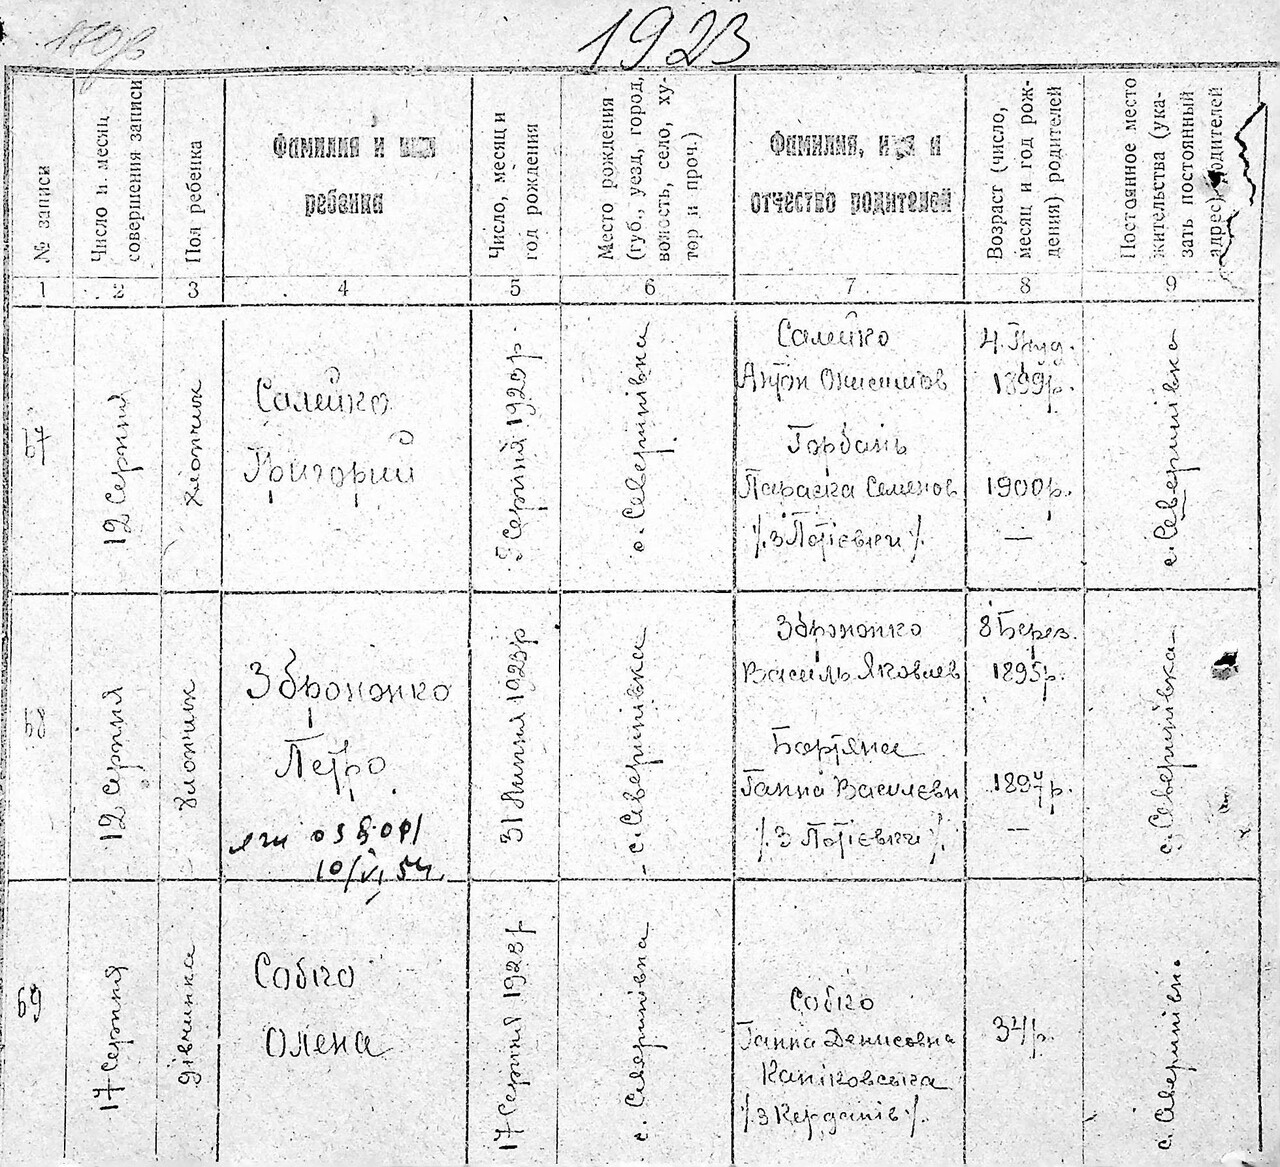 1923
№ записи
Число и месяц
совершения записи
Пол ребенка
Фамилия и имя
ребенка
Число, месяц и
год рождения
Место рождения
(губ., уезд, город,
волость, село, ху-
тор и проч.)
Фамилия, имя и
отчество родителей
Возраст (число,
месяц и год рож-
дения) родителей
Постоянное место
жительства (ука-
зать постоянный
адрес) родителей
1 2 3 4 5 6 7 8 9
67
12 Серпня
хлопчик
Салейко
Григорий
Серпня 1923р.
с. Северинівка
Салейко
Антон
Горбань
Параска Семенов
/. З Потієвки /.
4 Груд.
1899р.
1900р.
—
с. Северинівка
68
12 Серпня
хлопчик
Збрононко
Петро
10/VI 54
31 Липня 1923р
с. Северинівка
Збрононко
Василь Яковлев
Ганна Василєвн
/. З Потієвки /.
8 Берез.
1895р.
1897р.
—
с. Северинівка
69
17 Серпня
дівчинка
Собко
Олена
17 Серпня 1923р
с. Северинівка
Собко
Ганна Денисовна
Каніковська
/. з Кердапів /.
34р.
с. Северинівк.